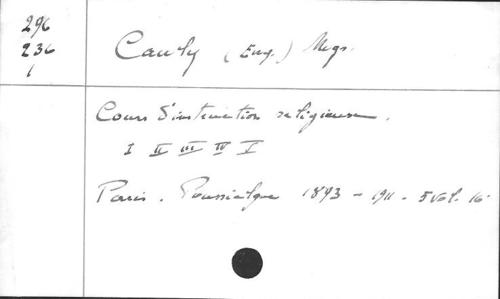 296
236
1
Cauly (Eug.) Mgr.
Cours d'instruction religieuse.
I II III IV I
Paris. Poussielgue 1893 - 1911. 5 vol. 16°